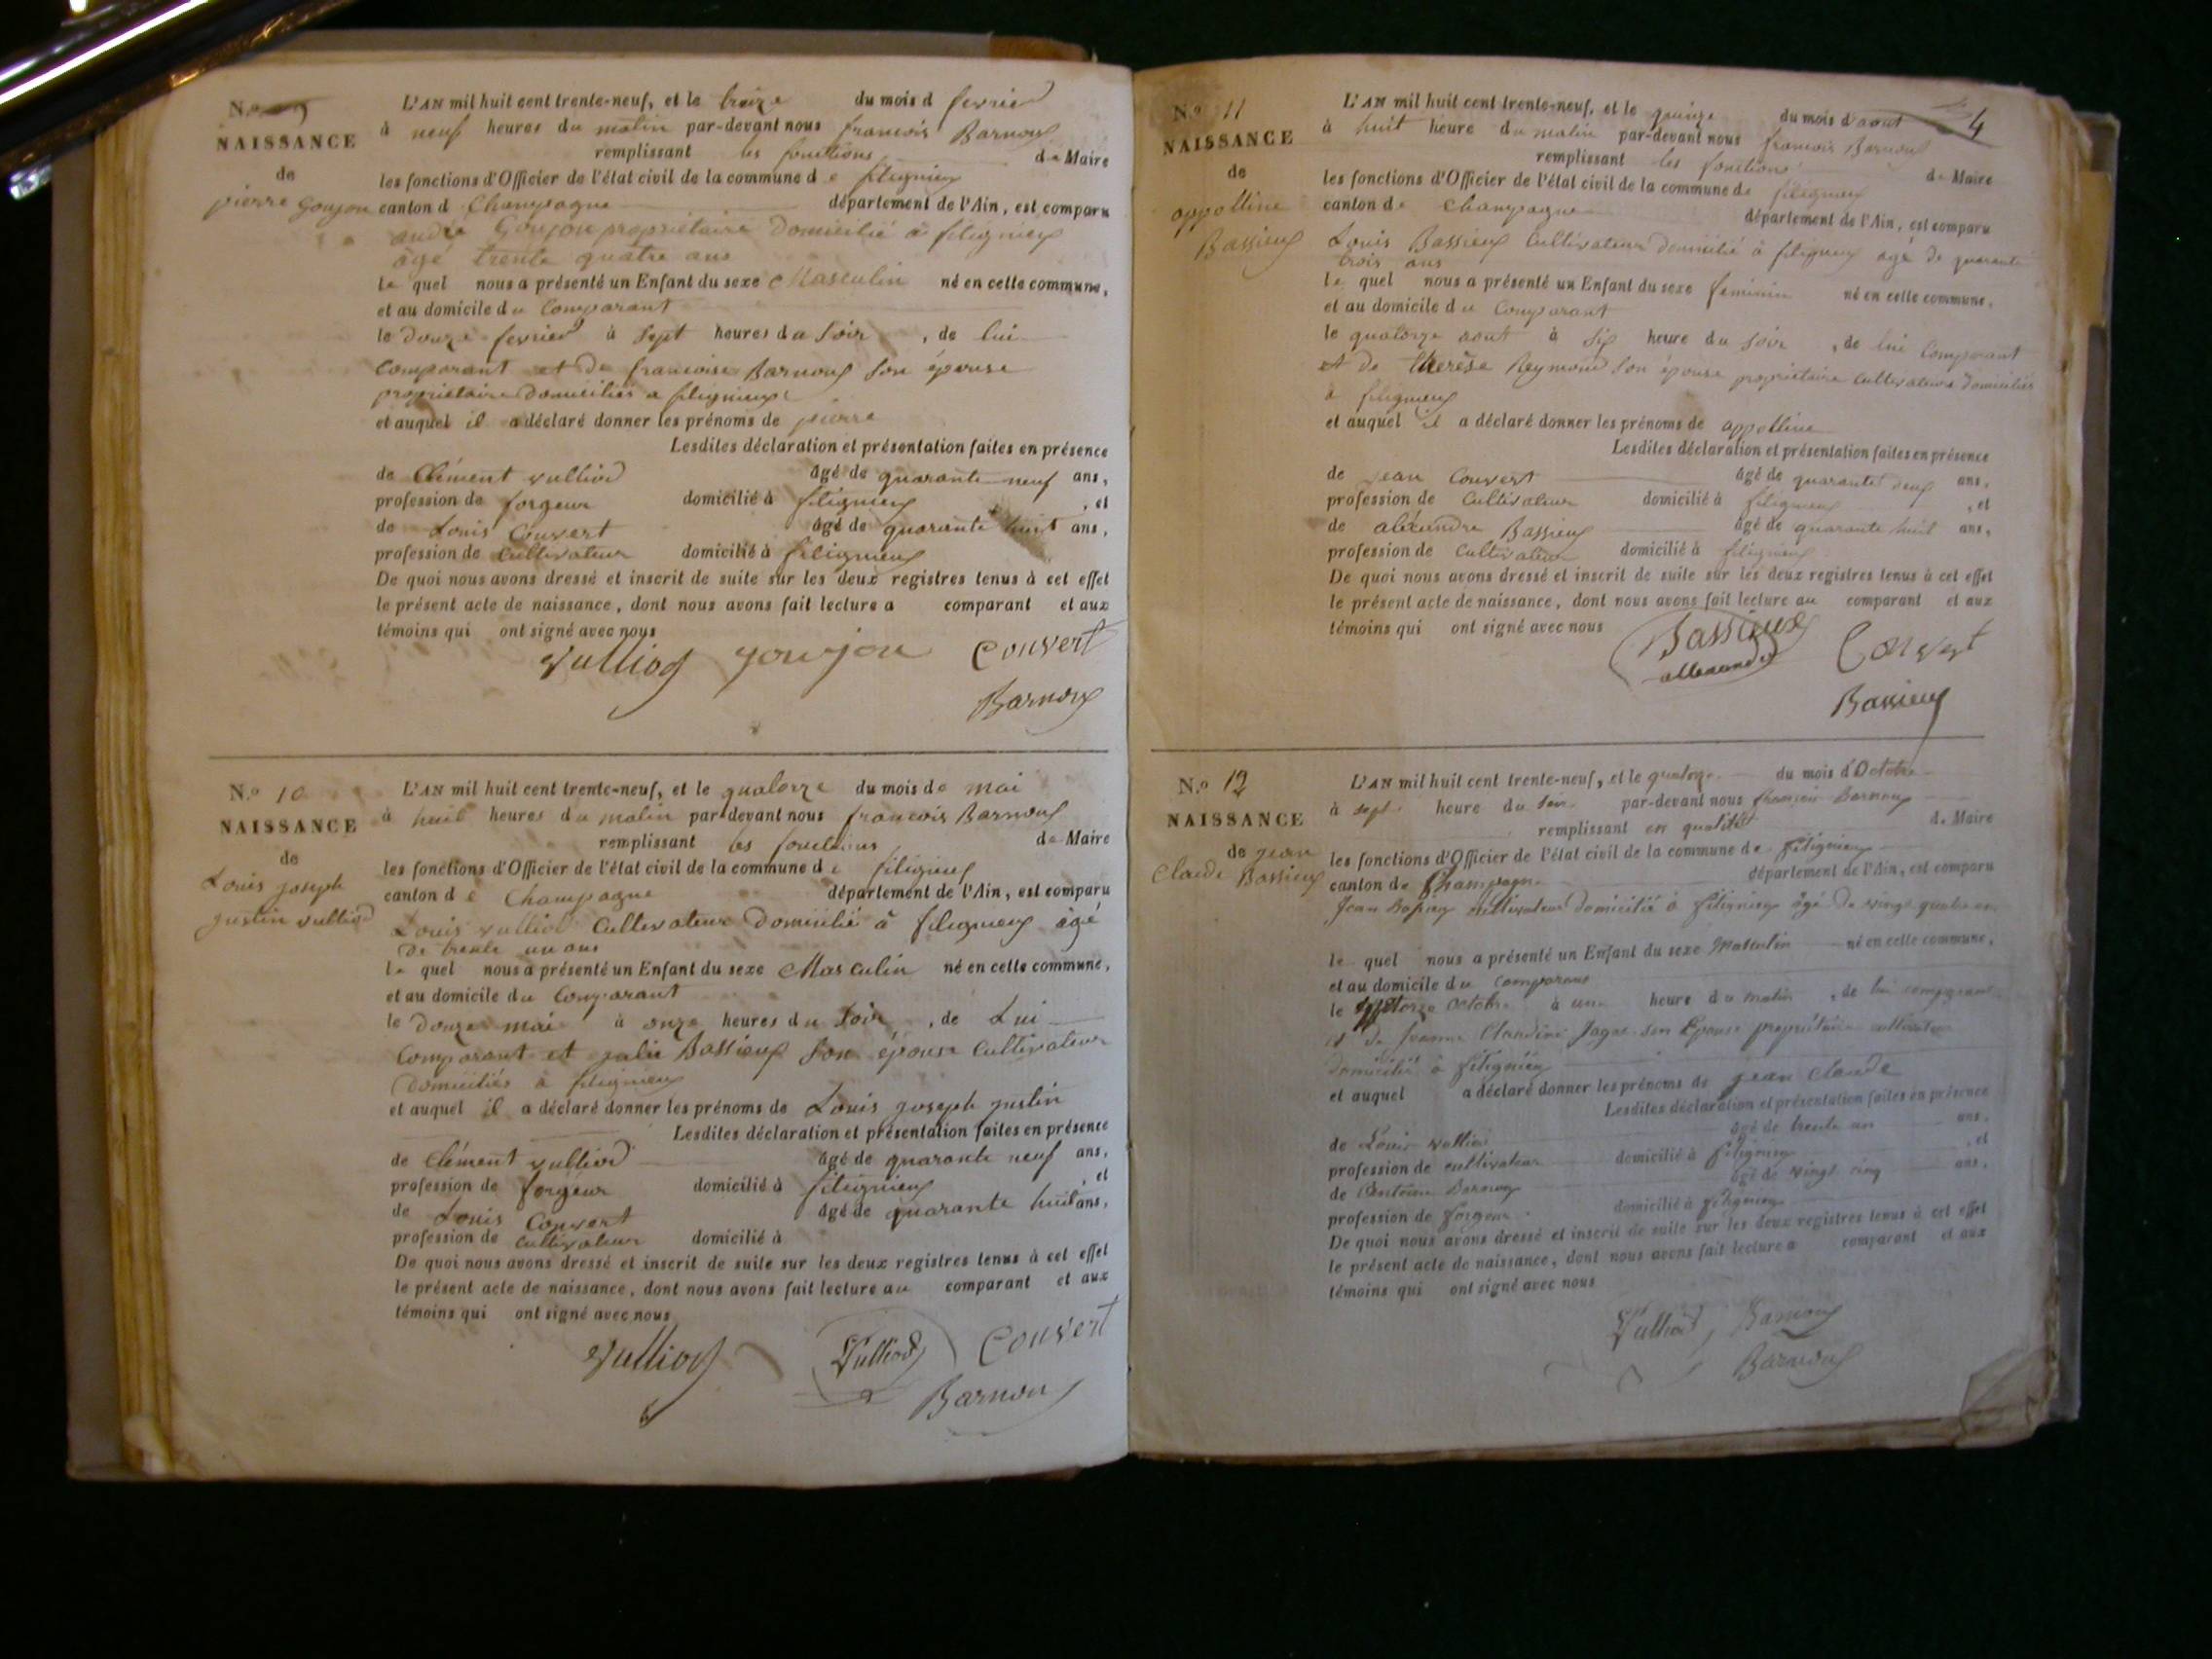 N.o 9
NAISSANCE
de
pierre Goujon
L'AN mil huit cent trente-neuf, et le treize du mois d fevrier
à neuf heures du matin par-devant nous francois Barnoux
remplissant les fonctions de Maire
les fonctions d'Officier de l'état civil de la commune de filignieux
canton d Champagne département de l'Ain, est comparu
andré Goujon propriétaire Domicilié à filignieux
âgé trente quatre ans
le quel nous a présenté un Enfant du sexe Masculin né en cette commune,
et au domicile du Comparant
le Douze fevrier à Sept heures du Soir, de lui
Comparant et De francoise Barnoux Son épouse
propriétaire Domiciliés a filignieux
et auquel il a déclaré donner les prénoms de pierre
Lesdites déclaration et présentation faites en présence
de Clément vulliod âgé de quarante neuf ans,
profession de forgeur domicilié à filignieux, et
de Louis Couvert âgé de quarante huit ans,
profession de Cultivateur domicilié à filignieux
De quoi nous avons dressé et inscrit de suite sur les deux registres tenus à cet effet
le présent acte de naissance, dont nous avons fait lecture a comparant et aux
témoins qui ont signé avec nous
Vulliod goujon Couvert
Barnoux
N.o 10
NAISSANCE
de
Louis joseph
justin vulliod
L'AN mil huit cent trente-neuf, et le quatorze du mois de mai
à huit heures du matin par-devant nous francois Barnoux
remplissant les fonctions de Maire
les fonctions d'Officier de l'état civil de la commune de filignieux
canton de Champagne département de l'Ain, est comparu
Louis vulliod Cultivateur Domicilié à filignieux âgé
De trente un ans
le quel nous a présenté un Enfant du sexe Masculin né en cette commune,
et au domicile du Comparant
le Douze mai à onze heures du Soir, de Lui
Comparant et julie Bassieux Son épouse Cultivateur
Domiciliés à filignieux
et auquel il a déclaré donner les prénoms de Louis joseph justin
Lesdites déclaration et présentation faites en présence
de Clément vulliod âgé de quarante neuf ans,
profession de forgeur domicilié à filignieux, et
de Louis Couvert âgé de quarante huit ans,
profession de Cultivateur domicilié à
De quoi nous avons dressé et inscrit de suite sur les deux registres tenus à cet effet
le présent acte de naissance, dont nous avons fait lecture au comparant et aux
témoins qui ont signé avec nous
Vulliod Vulliod Couvert
Barnoux
4
N.o 11
NAISSANCE
de
appolline
Bassieux
L'AN mil huit cent trente-neuf, et le quinze du mois d'aout
à huit heure du matin par-devant nous francois Barnoux
remplissant les fonctions de Maire
les fonctions d'Officier de l'état civil de la commune de filignieux
canton de Champagne département de l'Ain, est comparu
Louis Bassieux Cultivateur Domicilié à filignieux agé de quarante
trois ans
le quel nous a présenté un Enfant du sexe feminin né en cette commune.
et au domicile du Comparant
le quatorze aout à Six heure du Soir, de lui Comparant
et De therèse Reymond Son épouse propriétaire Cultivateurs Domiciliés
à filignieux
et auquel il a déclaré donner les prénoms de appolline
Lesdites déclaration et présentation faites en présence
de jean Couvert âgé de quarante deux ans,
profession de Cultivateur domicilié à filignieux, et
de aléxandre Bassieux âgé de quarante huit ans,
profession de Cultivateur domicilié à filignieux
De quoi nous avons dressé et inscrit de suite sur les deux registres tenus à cet effet
le présent acte de naissance, dont nous avons fait lecture au comparant et aux
témoins qui ont signé avec nous
Bassieux Couvert
allexandre
Bassieux
N.o 12
NAISSANCE
de jean
Claude Bassieux
L'AN mil huit cent trente-neuf, et le quatorze du mois d'Octobre
à sept heure du Soir par-devant nous françois Barnoux
remplissant en qualité de Maire
les fonctions d'Officier de l'état civil de la commune de filignieux
canton de Champagne département de l'Ain, est comparu
Jean Bassieux cultivateur domicilié à filignieux âgé De vingt quatre ans
le quel nous a présenté un Enfant du sexe Masculin né en cette commune,
et au domicile du comparant
le quatorze Octobre à une heure du matin, de lui comparant
et De Jeanne Claudine son Epouse propriétaire cultivateur
domicilié à filignieux
et auquel a déclaré donner les prénoms de jean Claude
Lesdites déclaration et présentation faites en présence
de Louis vulliod âgé de trente un ans,
profession de cultivateur domicilié à filignieux, et
de Barnoux âgé de vingt cinq ans,
profession de forgeur domicilié à filignieux
De quoi nous avons dressé et inscrit de suite sur les deux registres tenus à cet effet
le présent acte de naissance, dont nous avons fait lecture a comparant et aux
témoins qui ont signé avec nous
Vulliod Barnoux
Barnoux